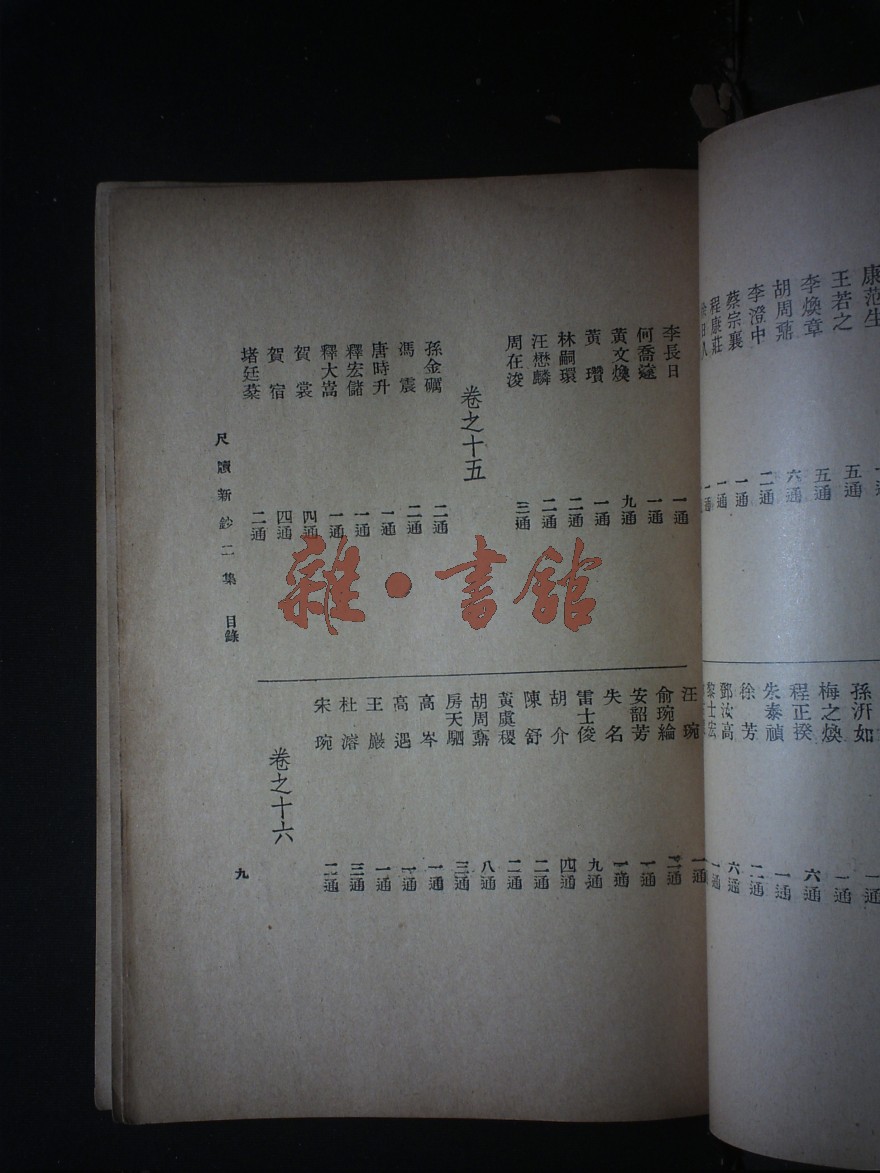 康范生
王若之 五通
李煥章 五通
胡周鼒 六通
李澄中 二通
蔡宗襄 一通
程康莊 一通
孫汧如 一通
梅之煥 一通
程正揆 六通
朱泰禎 一通
徐芳 二通
鄧汝高 六通
黎士宏 一通
李長日 一通
何喬遠 一通
黃文煥 九通
黃瓚 一通
林嗣環 二通
汪懋麟 二通
周在浚 三通
卷之十五
孫金礪 二通
馮震 二通
唐時升 一通
釋宏儲 一通
釋大嵩 一通
賀裳 四通
賀宿 四通
堵廷棻 二通
汪琬 一通
俞琬綸 二通
安韶芳 一通
失名 一通
雷士俊 九通
胡介 四通
陳舒 二通
黃虞稷 二通
胡周鼒 八通
房天駟 三通
高岑 一通
高遇 一通
王巖 一通
杜濬 三通
宋琬 二通
卷之十六
尺牘新鈔二集 目錄
九
雜·書館